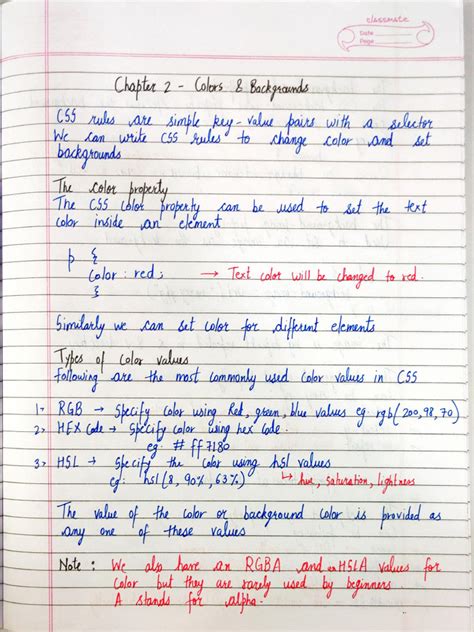 classmate
Date
Page
Chapter 2 - Colors & Backgrounds
CSS rules are simple key-value pairs with a selector
We can write CSS rules to change color and set
backgrounds
The color property
The CSS color property can be used to set the text
color inside an element
p {
color: red; → Text color will be changed to red.
}
Similarly we can set color for different elements
Types of color values
Following are the most commonly used color values in CSS
1→ RGB → Specify color using Red, green, blue values eg. rgb(200, 98, 70)
2→ HEX Code → Specify color using hex code.
eg: # ff7180
3→ HSL → Specify the color using hsl values
eg: hsl(8, 90%, 63%) ↳ hue, saturation, lightness
The value of the color or background color is provided as
any one of these values
Note : We also have an RGBA and an HSLA values for
color but they are rarely used by beginners
A stands for alpha.